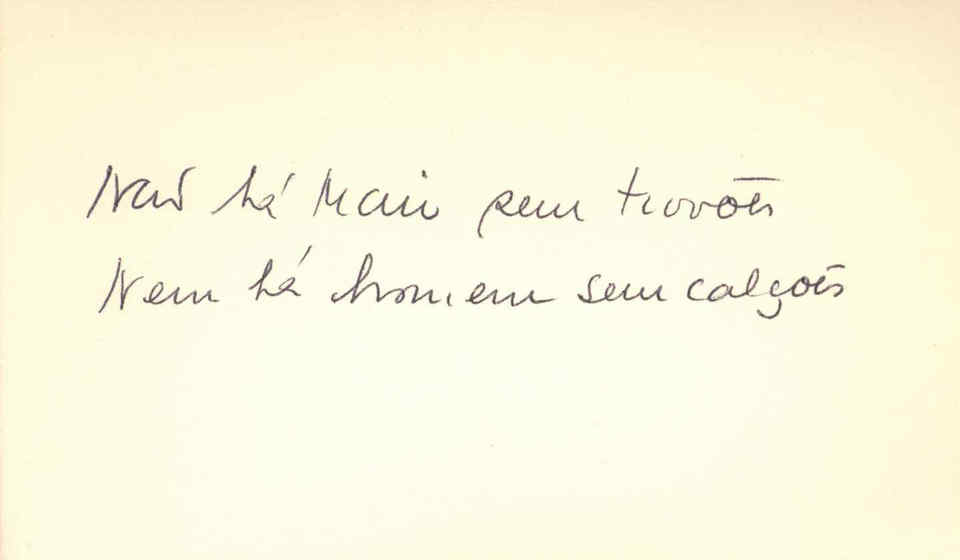 Não há Maio sem trovões
Nem há homem sem calções